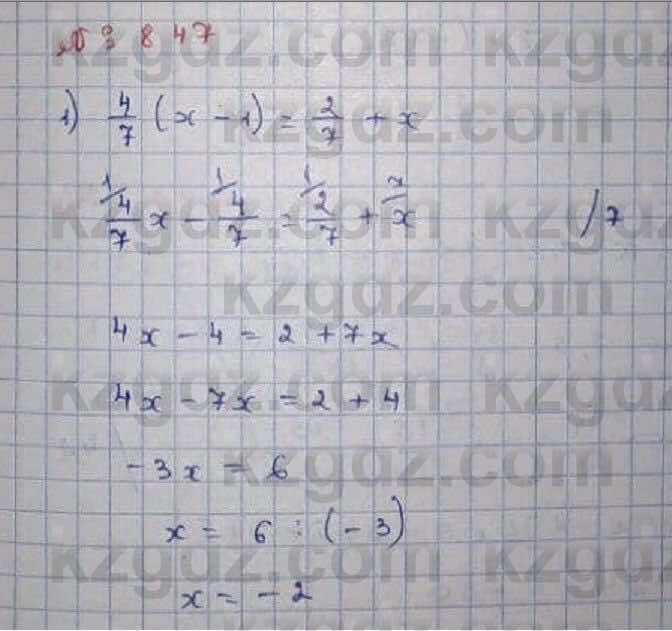 № 3 847
kzgdz.com kzgdz
1) 4/7 (x - 1) = 2/7 + x
1/ 1/ 1/ 7/
4/7 x - 4/7 = 2/7 + x /7
kzgdz.com kzgdz
kzgdz.com
4x - 4 = 2 + 7x
4x - 7x = 2 + 4
kzgdz.com kzgdz
-3x = 6
kzgdz.com
x = 6 : (-3)
kzgdz.com kzgdz
x = -2